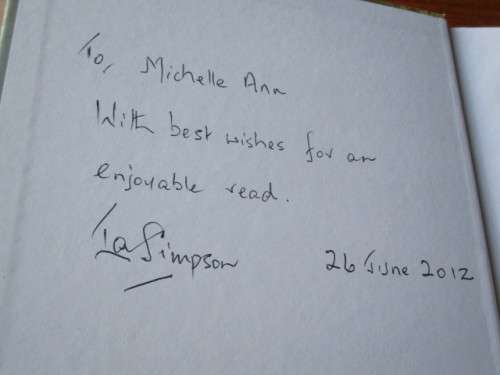 To, Michelle Ann
With best wishes for an
enjoyable read.
Ia Simpson 26 June 2012